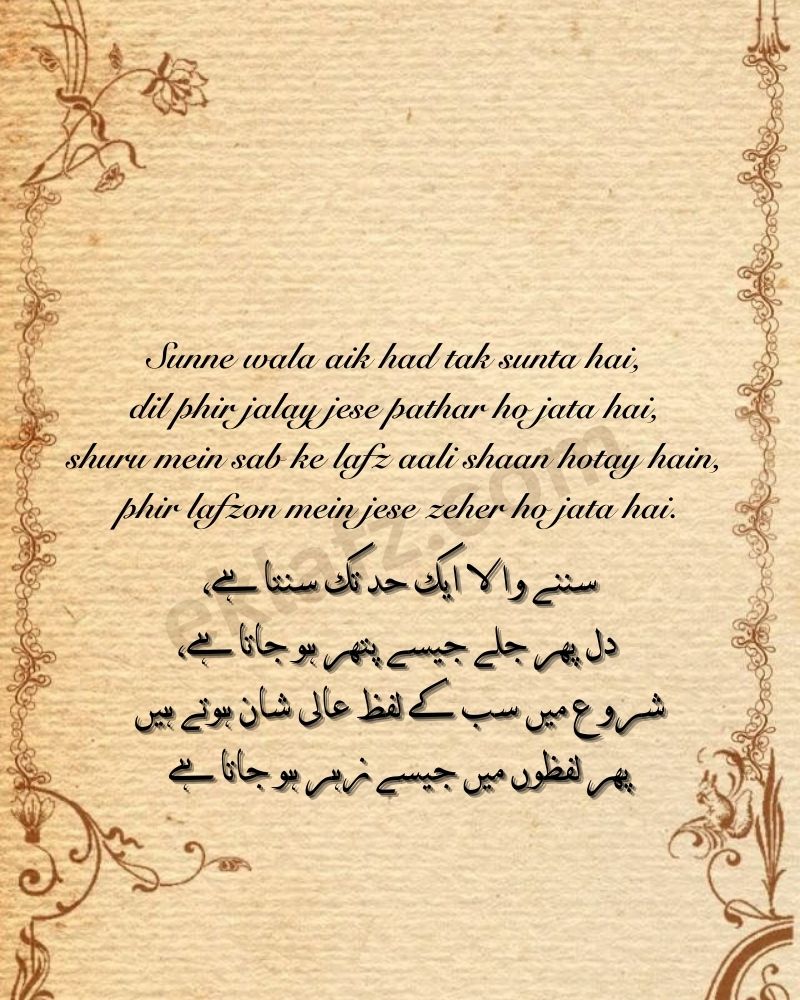 Sunne wala aik had tak sunta hai,
dil phir jalay jese pathar ho jata hai,
shuru mein sab ke lafz aali shaan hotay hain,
phir lafzon mein jese zeher ho jata hai.
سننے والا ایک حد تک سنتا ہے،
دل پھر جلے جیسے پتھر ہو جاتا ہے،
شروع میں سب کے لفظ عالی شان ہوتے ہیں
پھر لفظوں میں جیسے زہر ہو جاتا ہے
eklafz.com